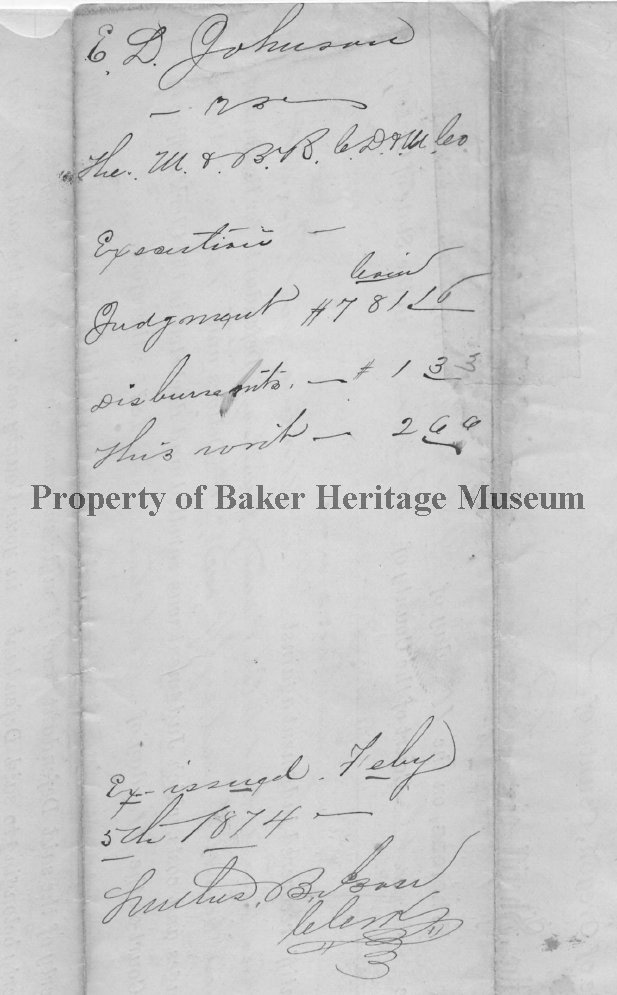 E. D. Johnson
— vs —
The. M. & B. R. C. D. & M. Co
Execution —
Coin
Judgment #781 16
Disbursments. — # 1 3
This writ — 2 60
Property of Baker Heritage Museum
Ex- issued. Feby
5th 1874 —
Luther B. Ison
Clerk